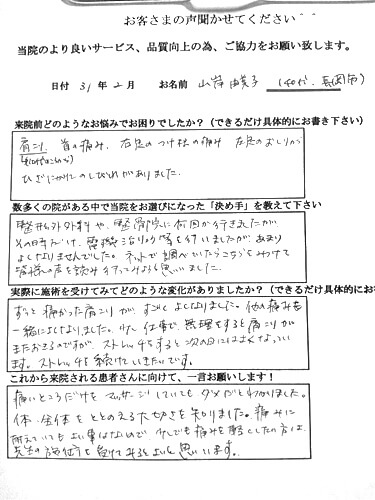 お客さまの声聞かせてください＾＾
当院のより良いサービス、品質向上の為、ご協力をお願い致します。
日付 31年2月 お名前 山岸 由美子 (40代、長岡市)
来院前どのようなお悩みでお困りでしたか？（できるだけ具体的にお書き下さい）
肩こり、首の痛み、右足のつけ根の痛み 左足のおしりから
ひざにかけてのしびれがありました。
数多くの院がある中で当院をお選びになった「決め手」を教えて下さい
整形外科や、整骨院に何回か行きましたが
その時だけで、電機治りょう等を行いましたが、あまり
よくなりませんでした。ネットで調べていたらこちらをみつけて
皆様の声を読み 行ってみようと思いました。
実際に施術を受けてみてどのような変化がありましたか？（できるだけ具体的にお
ずっと痛かった肩こりが すごく よくなりました。他の痛みも
一緒によくなりました。少し仕事で、無理をすると肩こりが
またおこるのですが、ストレッチをすると次の日にはよくなってい
ます。ストレッチを続けていきたいです。
これから来院される患者さんに向けて、一言お願いします！
痛いところだけをマッサージしていても ダメだとわかりました。
体全体をととのえる大切さを知りました。痛みに
耐えていても良い事はないので、少しでも痛みを感じた方は、
先生の施術を受けてみるとよいと思います。